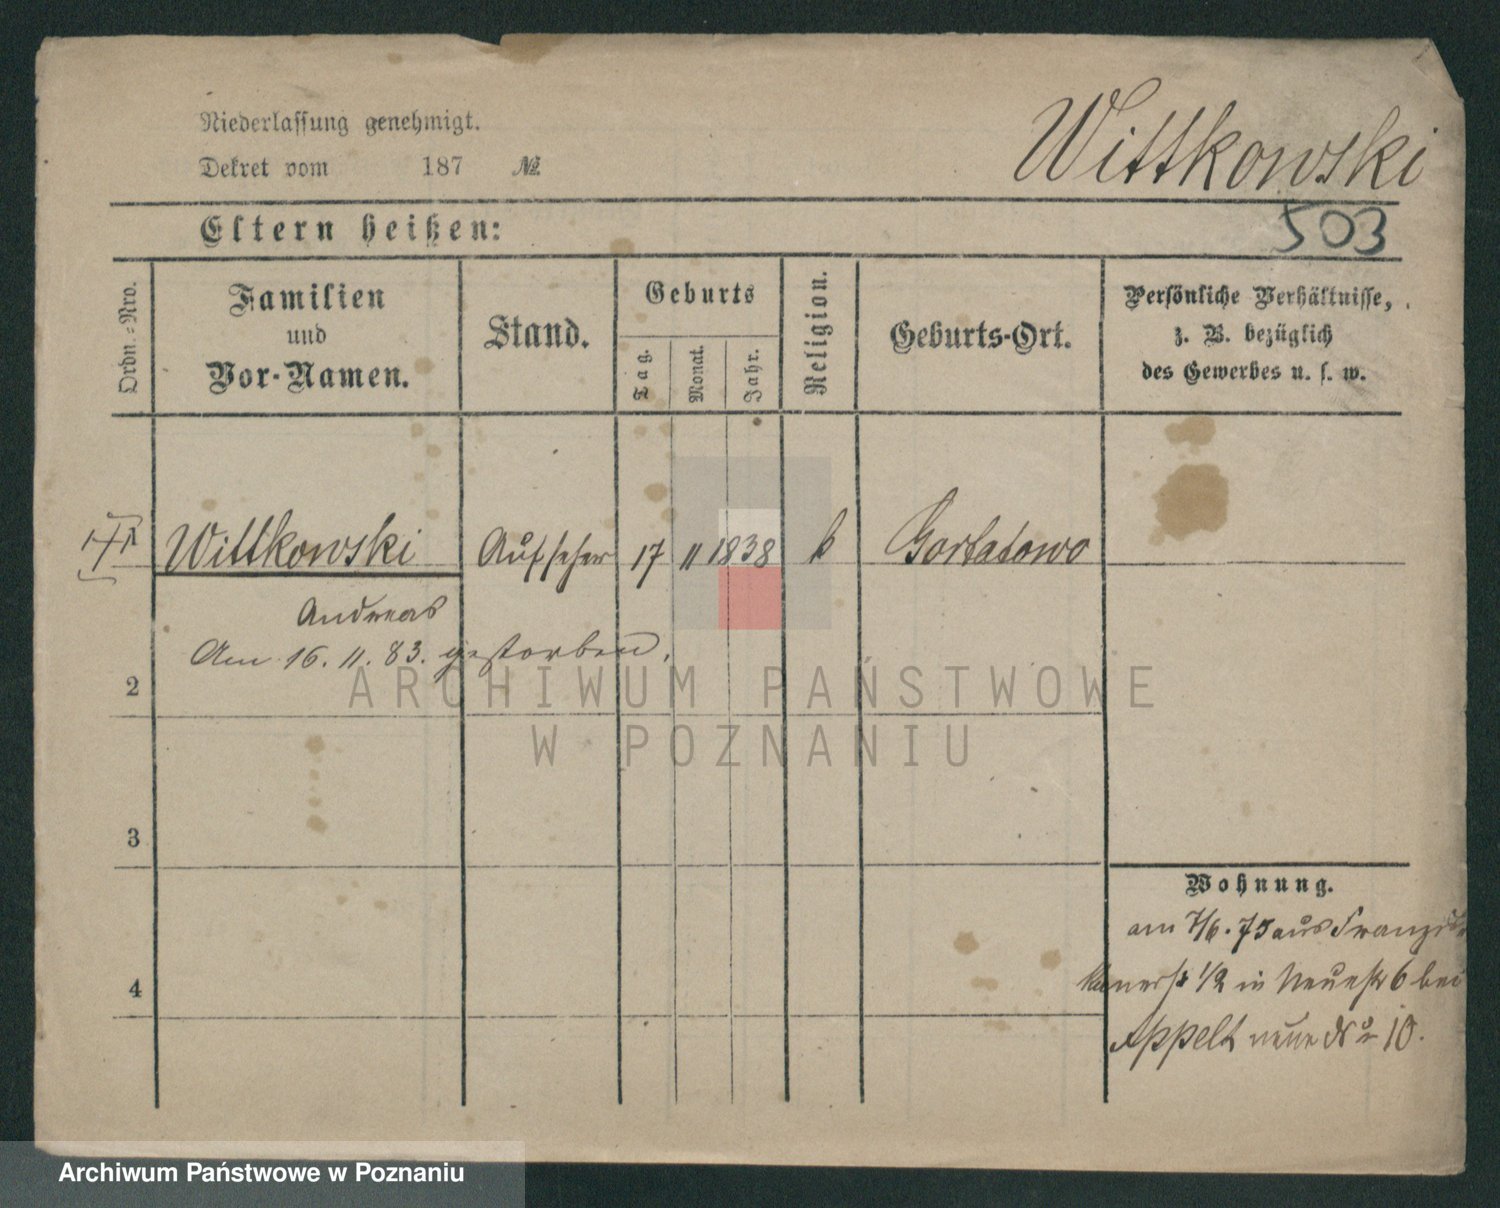 Niederlassung genehmigt.
Dekret vom 187 №
Wittkowski
503
Eltern heißen:
Ordn.-Nro.
Familien
und
Vor-Namen.
Stand.
Geburts
Tag.
Monat.
Jahr.
Religion.
Geburts-Ort.
Persönliche Verhältnisse,
z. B. bezüglich
des Gewerbes u. s. w.
Wittkowski Aufseher 17 11 1838 k Gortatowo
Andreas
Am 16. 11. 83. gestorben.
2
3
4
Wohnung.
am 7/6. 75 aus Franzis
kanerst 1/2 in Neuestr 6 bei
Appelt neue No 10.
ARCHIWUM PAŃSTWOWE
W POZNANIU
Archiwum Państwowe w Poznaniu